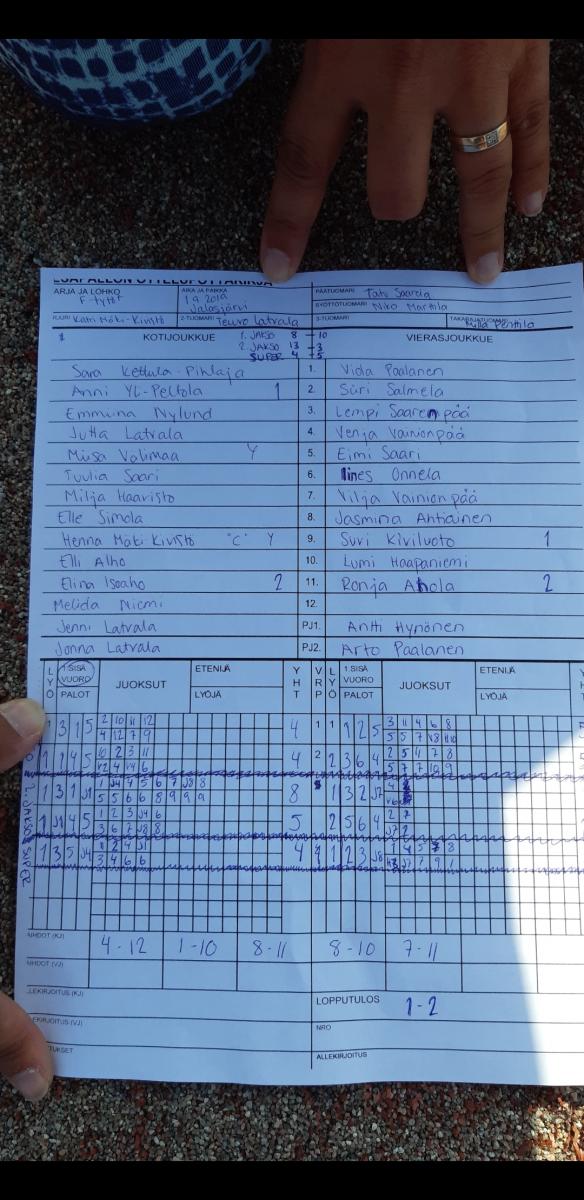 PESÄPALLON OTTELUPÖYTÄKIRJA
SARJA JA LOHKO AIKA JA PAIKKA PÄÄTUOMARI Tatu Saarela
F-tytöt 1.9.2019 SYÖTTÖTUOMARI Niko Marttila
Jalasjärvi
Katri Mäki-Kivistö 2-TUOMARI Teuvo Latvala 3-TUOMARI TAKARAJATUOMARI Milla Penttilä
KOTIJOUKKUE 1. JAKSO 8 - 10 VIERASJOUKKUE
2. JAKSO 13 - 3
SUPER 4 - 5
Sara Kettula-Pihlaja 1. Vida Paalanen
Anni Yli-Peltola 1 2. Siiri Salmela
Emmuina Nylund 3. Lempi Saarenpää
Jutta Latvala 4. Venja Vainionpää
Miisa Valimaa Y 5. Eimi Saari
Tuulia Saari 6. Iines Onnela
Milja Haavisto 7. Vilja Vainionpää
Elle Simola 8. Jasmina Ahtiainen
Henna Mäki-Kivistö "C" Y 9. Suvi Kiviluoto 1
Elli Alho 10. Lumi Haapaniemi
Elina Isoaho 2 11. Ronja Ahola 2
Melida Niemi 12.
Jenni Latvala PJ1. Antti Hynönen
Jonna Latvala PJ2. Arto Paalanen
LYÖ 1.SISÄ VUORO PALOT JUOKSUT ETENIJÄ LYÖJÄ YHT VRP LYÖ 1.SISÄ VUORO PALOT JUOKSUT ETENIJÄ LYÖJÄ
1 3 1 5 2 10 11 12 4 1 1 1 2 5 3 11 4 6 8
4 12 7 9
1 1 4 5 10 2 3 11 4 2 2 3 6 4 2 5 4 7 8
5 7 7 10 9
1 3 1 J1 8 1 3 2 J7
5 5 6 6 8 9 9 9
1 J1 4 5 1 2 3 J4 6 5 2 5 6 4 2 7
3 6 7 J8 8
1 3 5 J4 4 1 1 2 3 J8
3 4 6 6
2. JAKSO SUPER
4-12 1-10 8-11 8-10 7-11
LOPPUTULOS 1-2
NRO
ALLEKIRJOITUS